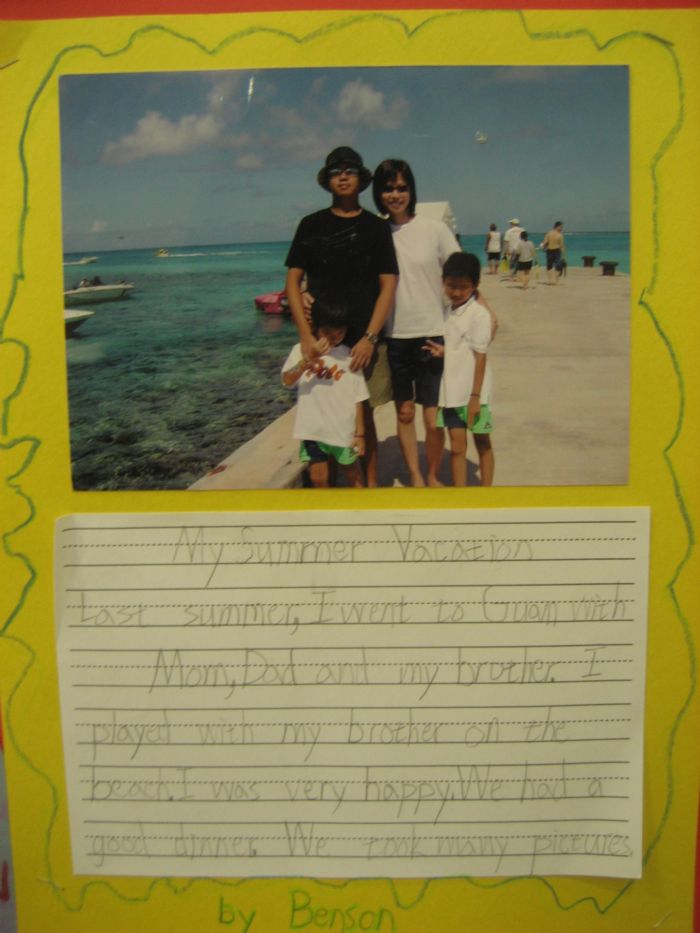 My Summer Vacation
Last summer, I went to Guam with
Mom, Dad and my brother. I
played with my brother on the
beach. I was very happy. We had a
good dinner. We took many pictures.
by Benson